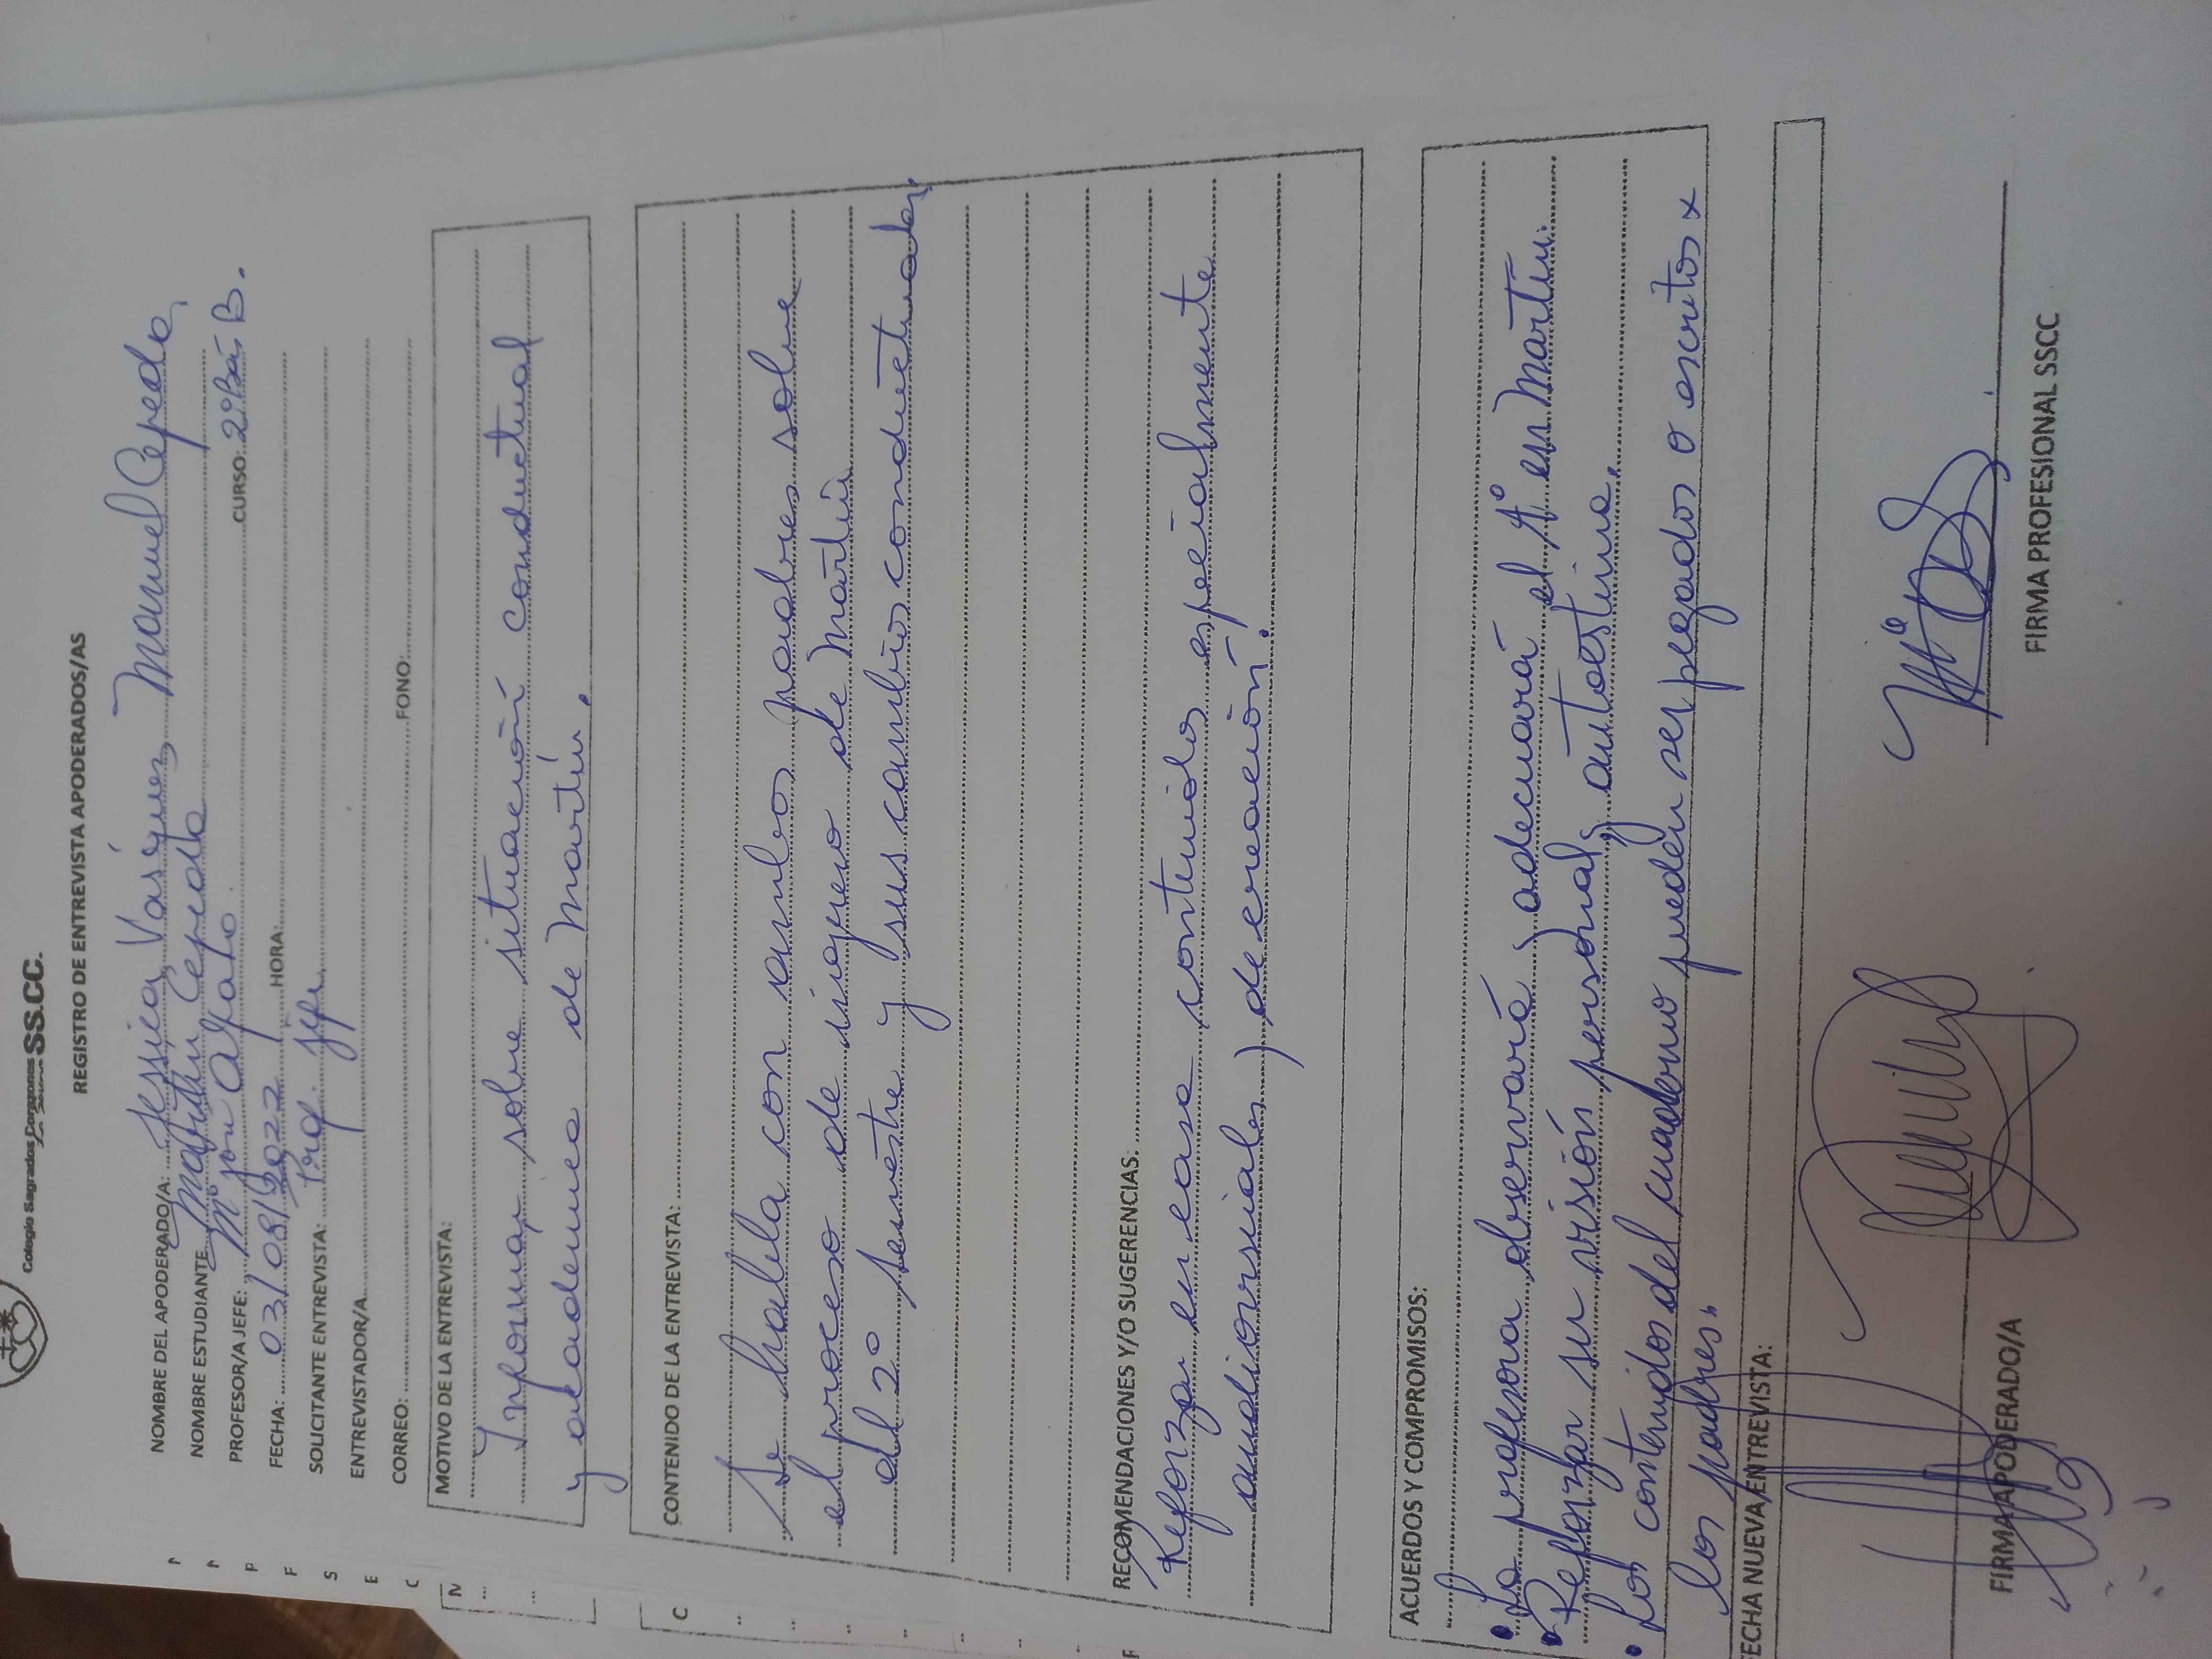 Colegio Sagrados Corazones SS.CC.
REGISTRO DE ENTREVISTA APODERADOS/AS
NOMBRE DEL APODERADO/A: Jessica Vasquez Manuel Cepeda
NOMBRE ESTUDIANTE Martín Cepeda
PROFESOR/A JEFE: Mª José CURSO: 2º Bás B.
FECHA: 03/08/2022 HORA:
SOLICITANTE ENTREVISTA: Prof. Jefe
ENTREVISTADOR/A
CORREO: FONO:
MOTIVO DE LA ENTREVISTA:
Informar sobre situación conductual
y academica de Martín.
CONTENIDO DE LA ENTREVISTA:
Se habla con ambos padres sobre
el proceso de ingreso de Martín
al 2º semestre y sus cambios conductuales
RECOMENDACIONES Y/O SUGERENCIAS.
Reforzar en casa contenidos especialmente
audiovisuales, de creación.
ACUERDOS Y COMPROMISOS:
• La profesora observará, adecuará el Aº en Martín.
• Reforzar su visión personal, autoestima.
• Los contenidos del cuaderno pueden ser pegados o escritos x
los padres.
FECHA NUEVA ENTREVISTA:
FIRMA APODERADO/A
FIRMA PROFESIONAL SSCC